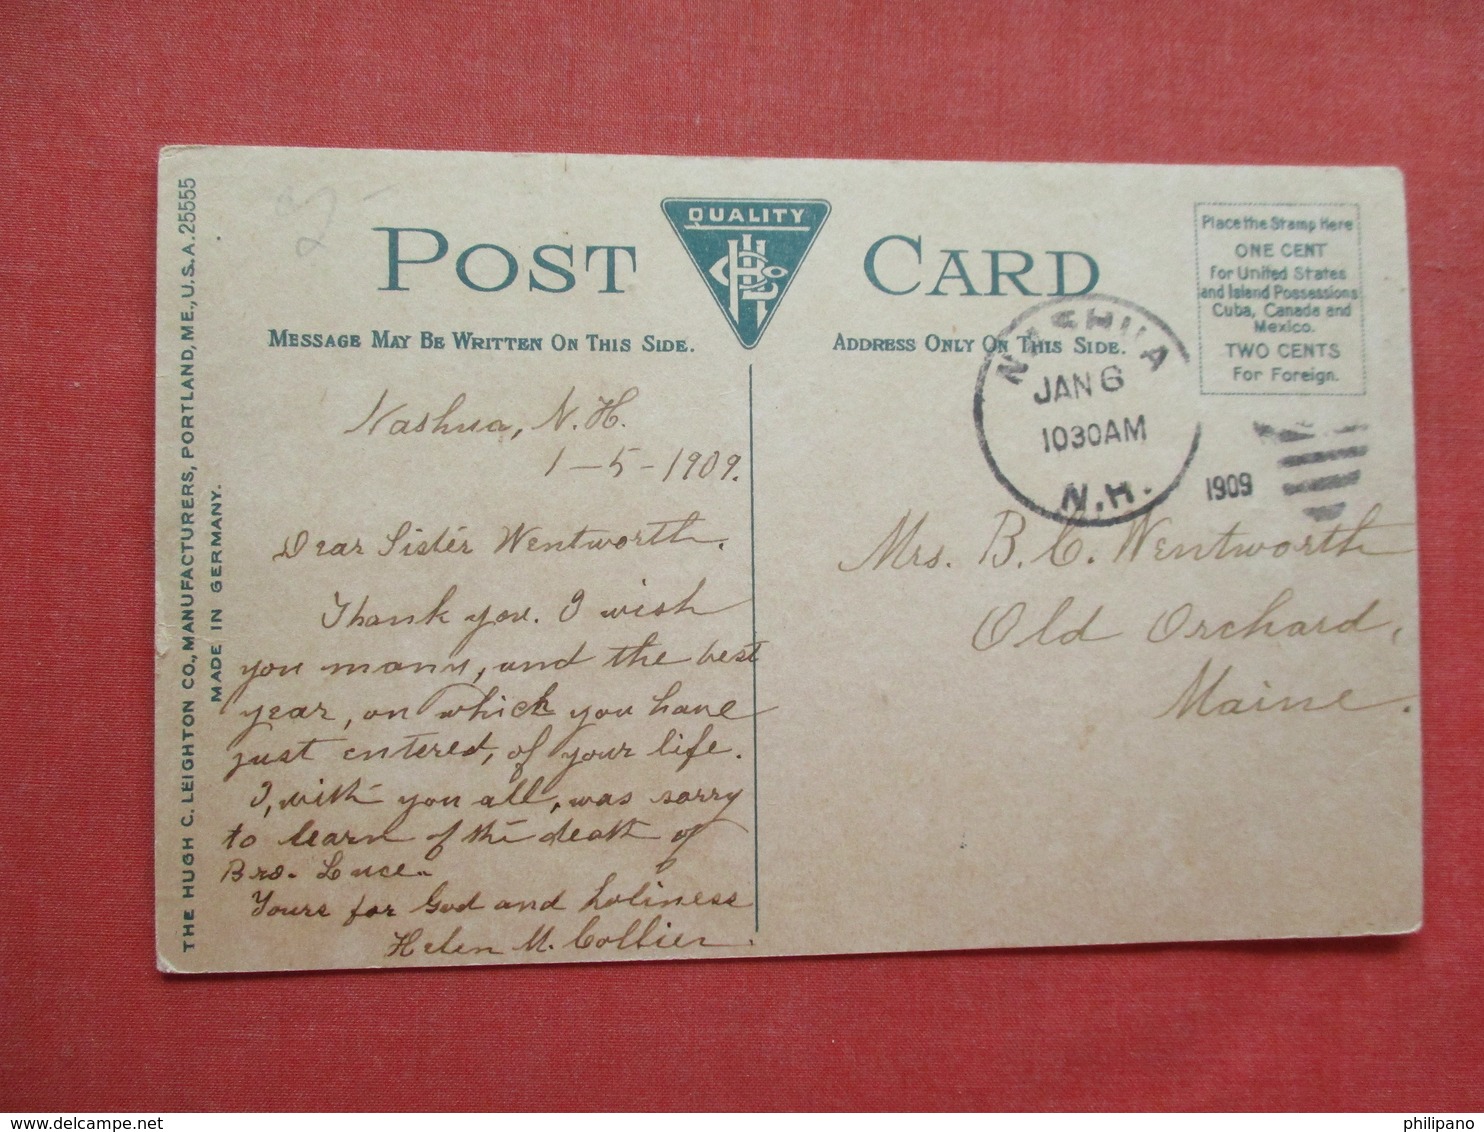 THE HUGH C. LEIGHTON CO., MANUFACTURERS, PORTLAND, ME., U.S.A. 25555
MADE IN GERMANY.
2-
POST CARD
QUALITY
MESSAGE MAY BE WRITTEN ON THIS SIDE.
ADDRESS ONLY ON THIS SIDE.
Place the Stamp Here
ONE CENT
for United States
and Island Possessions
Cuba, Canada and
Mexico.
TWO CENTS
For Foreign.
NASHUA
JAN 6
1030AM
N.H.
1909
Nashua, N.H.
1-5-1909.
Dear Sister Wentworth.
Thank you. I wish
you many, and the best
year, on which you have
just entered, of your life.
I, with you all, was sorry
to learn of the death of
Bro. Luce.
Yours for God and holiness
Helen M. Collier.
Mrs. B. C. Wentworth
Old Orchard,
Maine.
philipano